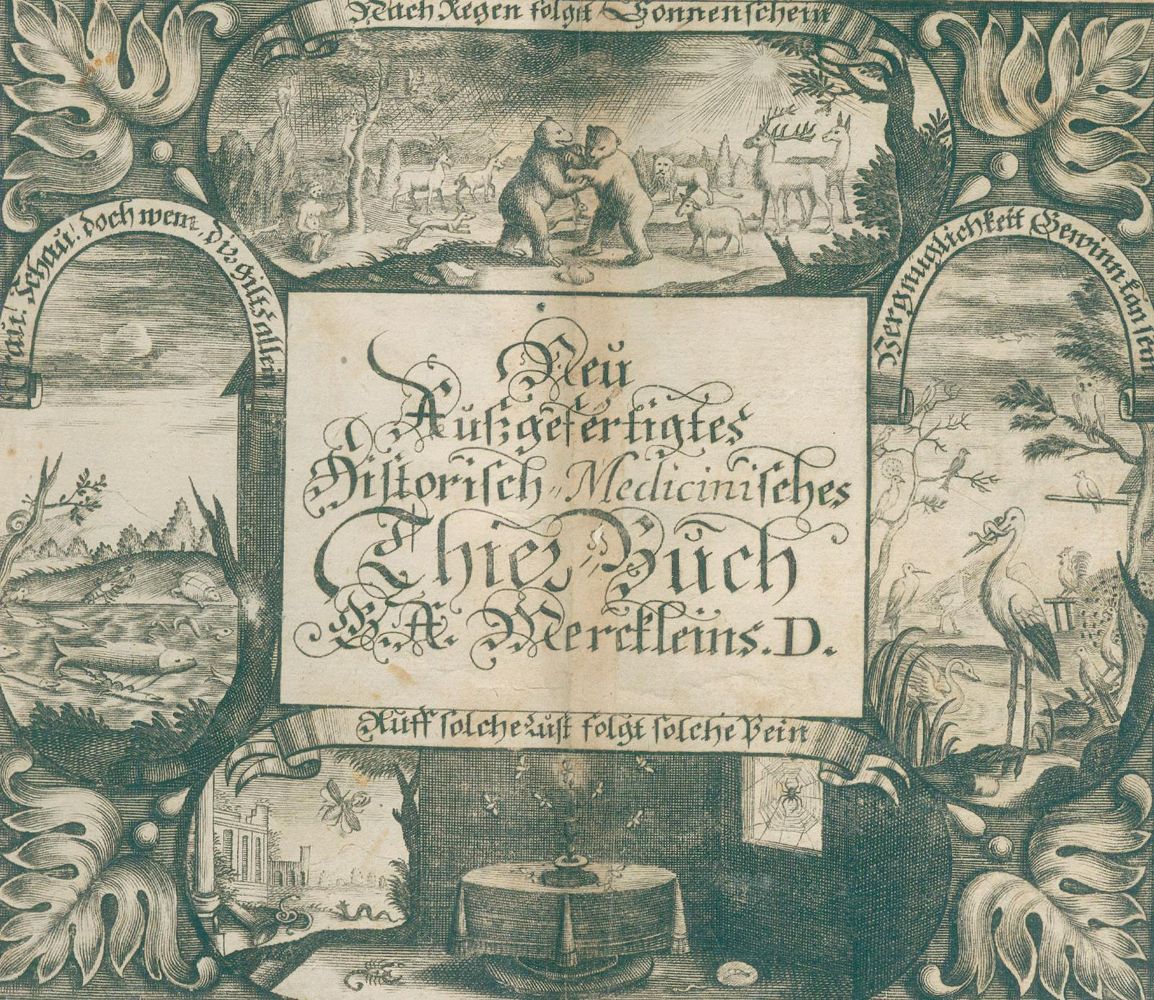 Nach Regen folgt Sonnenschein
trau! schau! doch wem, dir gilts allein
Vergnüglichkeit Gewinn kan sein
Neu
Außgefertigtes
Historisch⸗Medicinisches
Thier⸗Buch
G. A. Merckleins. D.
Auff solche Lust folgt solche Pein